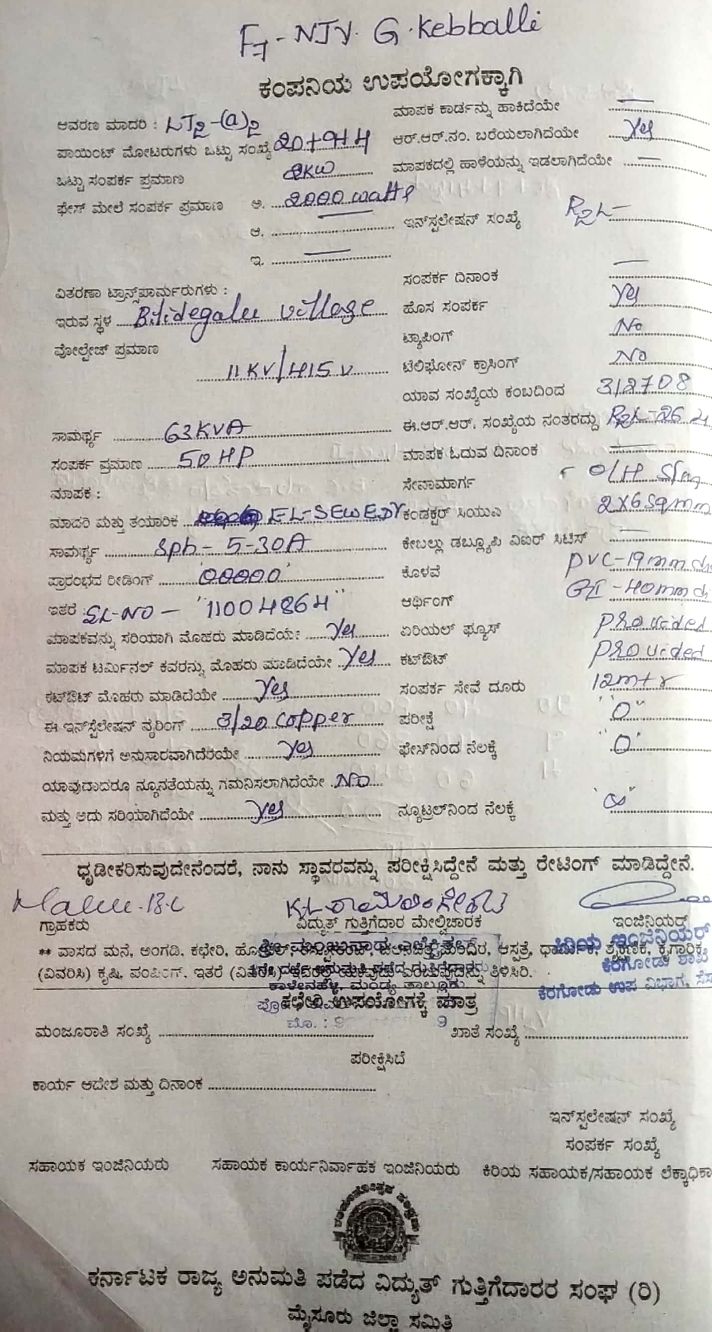 F7-NJY. G.Kebballi
ಕಂಪನಿಯ ಉಪಯೋಗಕ್ಕಾಗಿ
ಆವರಣ ಮಾದರಿ : LT2-(a)2
ಮಾಪಕ ಕಾರ್ಡನ್ನು ಹಾಕಿದೆಯೇ —
ಪಾಯಿಂಟ್ ಮೋಟರುಗಳು ಒಟ್ಟು ಸಂಖ್ಯೆ 20+9+4
ಆರ್.ಆರ್.ನಂ. ಬರೆಯಲಾಗಿದೆಯೇ Yes
ಒಟ್ಟು ಸಂಪರ್ಕ ಪ್ರಮಾಣ 2KW
ಮಾಪಕದಲ್ಲಿ ಹಾಳೆಯನ್ನು ಇಡಲಾಗಿದೆಯೇ —
ಫೇಸ್ ಮೇಲೆ ಸಂಪರ್ಕ ಪ್ರಮಾಣ ಅ. 2000 watts
ಆ. —
ಇನ್‌ಸ್ಟಲೇಷನ್ ಸಂಖ್ಯೆ R2L-
ಇ. —
ವಿತರಣಾ ಟ್ರಾನ್ಸ್‌ಪಾರ್ಮರುಗಳು :
ಸಂಪರ್ಕ ದಿನಾಂಕ —
ಇರುವ ಸ್ಥಳ Bilidegalu village
ಹೊಸ ಸಂಪರ್ಕ Yes
ವೋಲ್ಟೇಜ್ ಪ್ರಮಾಣ 11KV/415V
ಟ್ಯಾಪಿಂಗ್ No
ಟೆಲಿಫೋನ್ ಕ್ರಾಸಿಂಗ್ No
ಯಾವ ಸಂಖ್ಯೆಯ ಕಂಬದಿಂದ 3/2708
ಸಾಮರ್ಥ್ಯ 63KVA
ಈ.ಆರ್.ಆರ್. ಸಂಖ್ಯೆಯ ನಂತರದ್ದು
ಸಂಪರ್ಕ ಪ್ರಮಾಣ 50HP
ಮಾಪಕ ಓದುವ ದಿನಾಂಕ —
ಮಾಪಕ :
ಸೇವಾಮಾರ್ಗ O/H
ಮಾದರಿ ಮತ್ತು ತಯಾರಿಕ EL-SEWEDY
ಕಂಡಕ್ಟರ್ ಸಿಯುಎ 2X6sqmm
ಸಾಮರ್ಥ್ಯ Sph-5-30A
ಕೇಬಲ್ಲು ಡಬ್ಲ್ಯೂಪಿ ವಿಐಆರ್ ಸಿಟಿಸ್ —
ಪ್ರಾರಂಭದ ರೀಡಿಂಗ್ '00000'
ಕೊಳವೆ PVC-19mm
ಇತರೆ SL-NO - "11004864"
ಆರ್ಥಿಂಗ್ GI-40mm
ಮಾಪಕವನ್ನು ಸರಿಯಾಗಿ ಮೊಹರು ಮಾಡಿದೆಯೇ Yes
ಏರಿಯಲ್ ಫ್ಯೂಸ್ Provided
ಮಾಪಕ ಟರ್ಮಿನಲ್ ಕವರನ್ನು ಮೊಹರು ಮಾಡಿದೆಯೇ Yes
ಕಟ್‌ಔಟ್ Provided
ಕಟ್‌ಔಟ್ ಮೊಹರು ಮಾಡಿದೆಯೇ Yes
ಸಂಪರ್ಕ ಸೇವೆ ದೂರು 12mtr
ಈ ಇನ್‌ಸ್ಟೆಲೇಷನ್ ವೈರಿಂಗ್ 3/20 Copper
ಪರೀಕ್ಷೆ "0"
ನಿಯಮಗಳಿಗೆ ಅನುಸಾರವಾಗಿದೆರಿಯೇ Yes
ಫೇಸ್‌ನಿಂದ ನೆಲಕ್ಕೆ "0"
ಯಾವುದಾದರೂ ನ್ಯೂನತೆಯನ್ನು ಗಮನಿಸಲಾಗಿದೆಯೇ NO
ಮತ್ತು ಅದು ಸರಿಯಾಗಿದೆಯೇ Yes
ನ್ಯೂಟ್ರಲ್‌ನಿಂದ ನೆಲಕ್ಕೆ
ಧೃಢೀಕರಿಸುವುದೇನೆಂದರೆ, ನಾನು ಸ್ಥಾವರವನ್ನು ಪರೀಕ್ಷಿಸಿದ್ದೇನೆ ಮತ್ತು ರೇಟಿಂಗ್ ಮಾಡಿದ್ದೇನೆ.
ಗ್ರಾಹಕರು ವಿದ್ಯುತ್ ಗುತ್ತಿಗೆದಾರ ಮೇಲ್ವಿಚಾರಕ ಇಂಜಿನಿಯರ್
** ವಾಸದ ಮನೆ, ಅಂಗಡಿ. ಕಛೇರಿ, ಆಸ್ಪತ್ರೆ,
ಕಿರಿಯ ಇಂಜಿನಿಯರ್
(ವಿವರಿಸಿ) ಕೃಷಿ, ಪಂಪಿಂಗ್. ಇತರೆ ತಿಳಿಸಿರಿ.
ಕೆರಗೋಡು ಶಾಖೆ
ಕಾಳೇನಹಳ್ಳಿ, ಮಂಡ್ಯ ತಾಲ್ಲೂಕು
ಕೆರಗೋಡು ಉಪ ವಿಭಾಗ,
ಕಛೇರಿ ಉಪಯೋಗಕ್ಕೆ ಮಾತ್ರ
ಮಂಜೂರಾತಿ ಸಂಖ್ಯೆ ಖಾತೆ ಸಂಖ್ಯೆ
ಪರೀಕ್ಷಿಸಿದೆ
ಕಾರ್ಯ ಆದೇಶ ಮತ್ತು ದಿನಾಂಕ
ಇನ್‌ಸ್ಟಲೇಷನ್ ಸಂಖ್ಯೆ
ಸಂಪರ್ಕ ಸಂಖ್ಯೆ
ಸಹಾಯಕ ಇಂಜಿನಿಯರು ಸಹಾಯಕ ಕಾರ್ಯನಿರ್ವಾಹಕ ಇಂಜಿನಿಯರು ಕಿರಿಯ ಸಹಾಯಕ/ಸಹಾಯಕ ಲೆಕ್ಕಾಧಿಕಾ
ಕರ್ನಾಟಕ ರಾಜ್ಯ ಅನುಮತಿ ಪಡೆದ ವಿದ್ಯುತ್ ಗುತ್ತಿಗೆದಾರರ ಸಂಘ (ರಿ)
ಮೈಸೂರು ಜಿಲ್ಲಾ ಸಮಿತಿ